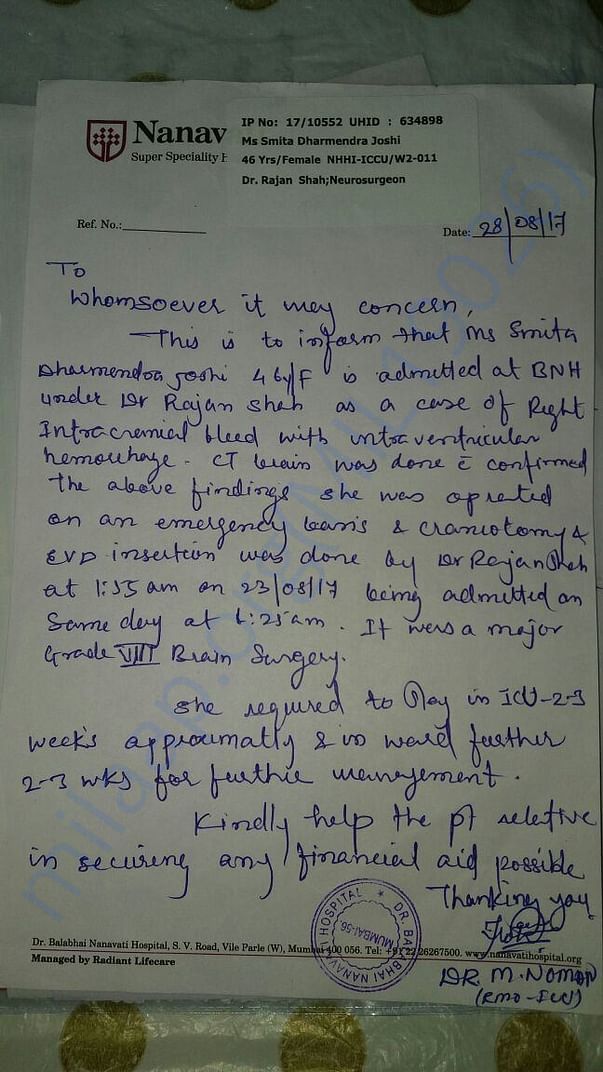 Nanav
Super Speciality H
IP No: 17/10552 UHID : 634898
Ms Smita Dharmendra Joshi
46 Yrs/Female NHHI-ICCU/W2-011
Dr. Rajan Shah;Neurosurgeon
Ref. No.:
Date: 28/08/17
To
Whomsoever it may concern,
This is to inform that Ms Smita
Dharmendra Joshi 46y/F is admitted at BNH
under Dr Rajan Shah as a case of Right
Intracranial bleed with intraventricular
hemorrhage. CT brain was done c̄ confirmed
the above findings she was oprated
on an emergency basis & craniotomy &
EVD insertion was done by Dr Rajan Shah
at 1:55 am on 23/08/17 being admitted on
same day at 1:25am. It was a major
Grade VIII Brain Surgery.
She required to stay in ICU-2-3
weeks approumatly & in ward further
2-3 wks for furthie management.
Kindly help the pt relative
in securing any financial aid possible
Thanking you
Dr. Balabhai Nanavati Hospital, S. V. Road, Vile Parle (W), Mumbai 400 056. Tel: +91 22 26267500. www.nanavatihospital.org
Managed by Radiant Lifecare
DR. BALABHAI NANAVATI HOSPITAL
MUMBAI-56
DR. M. NOMAN
(RMO-ICU)